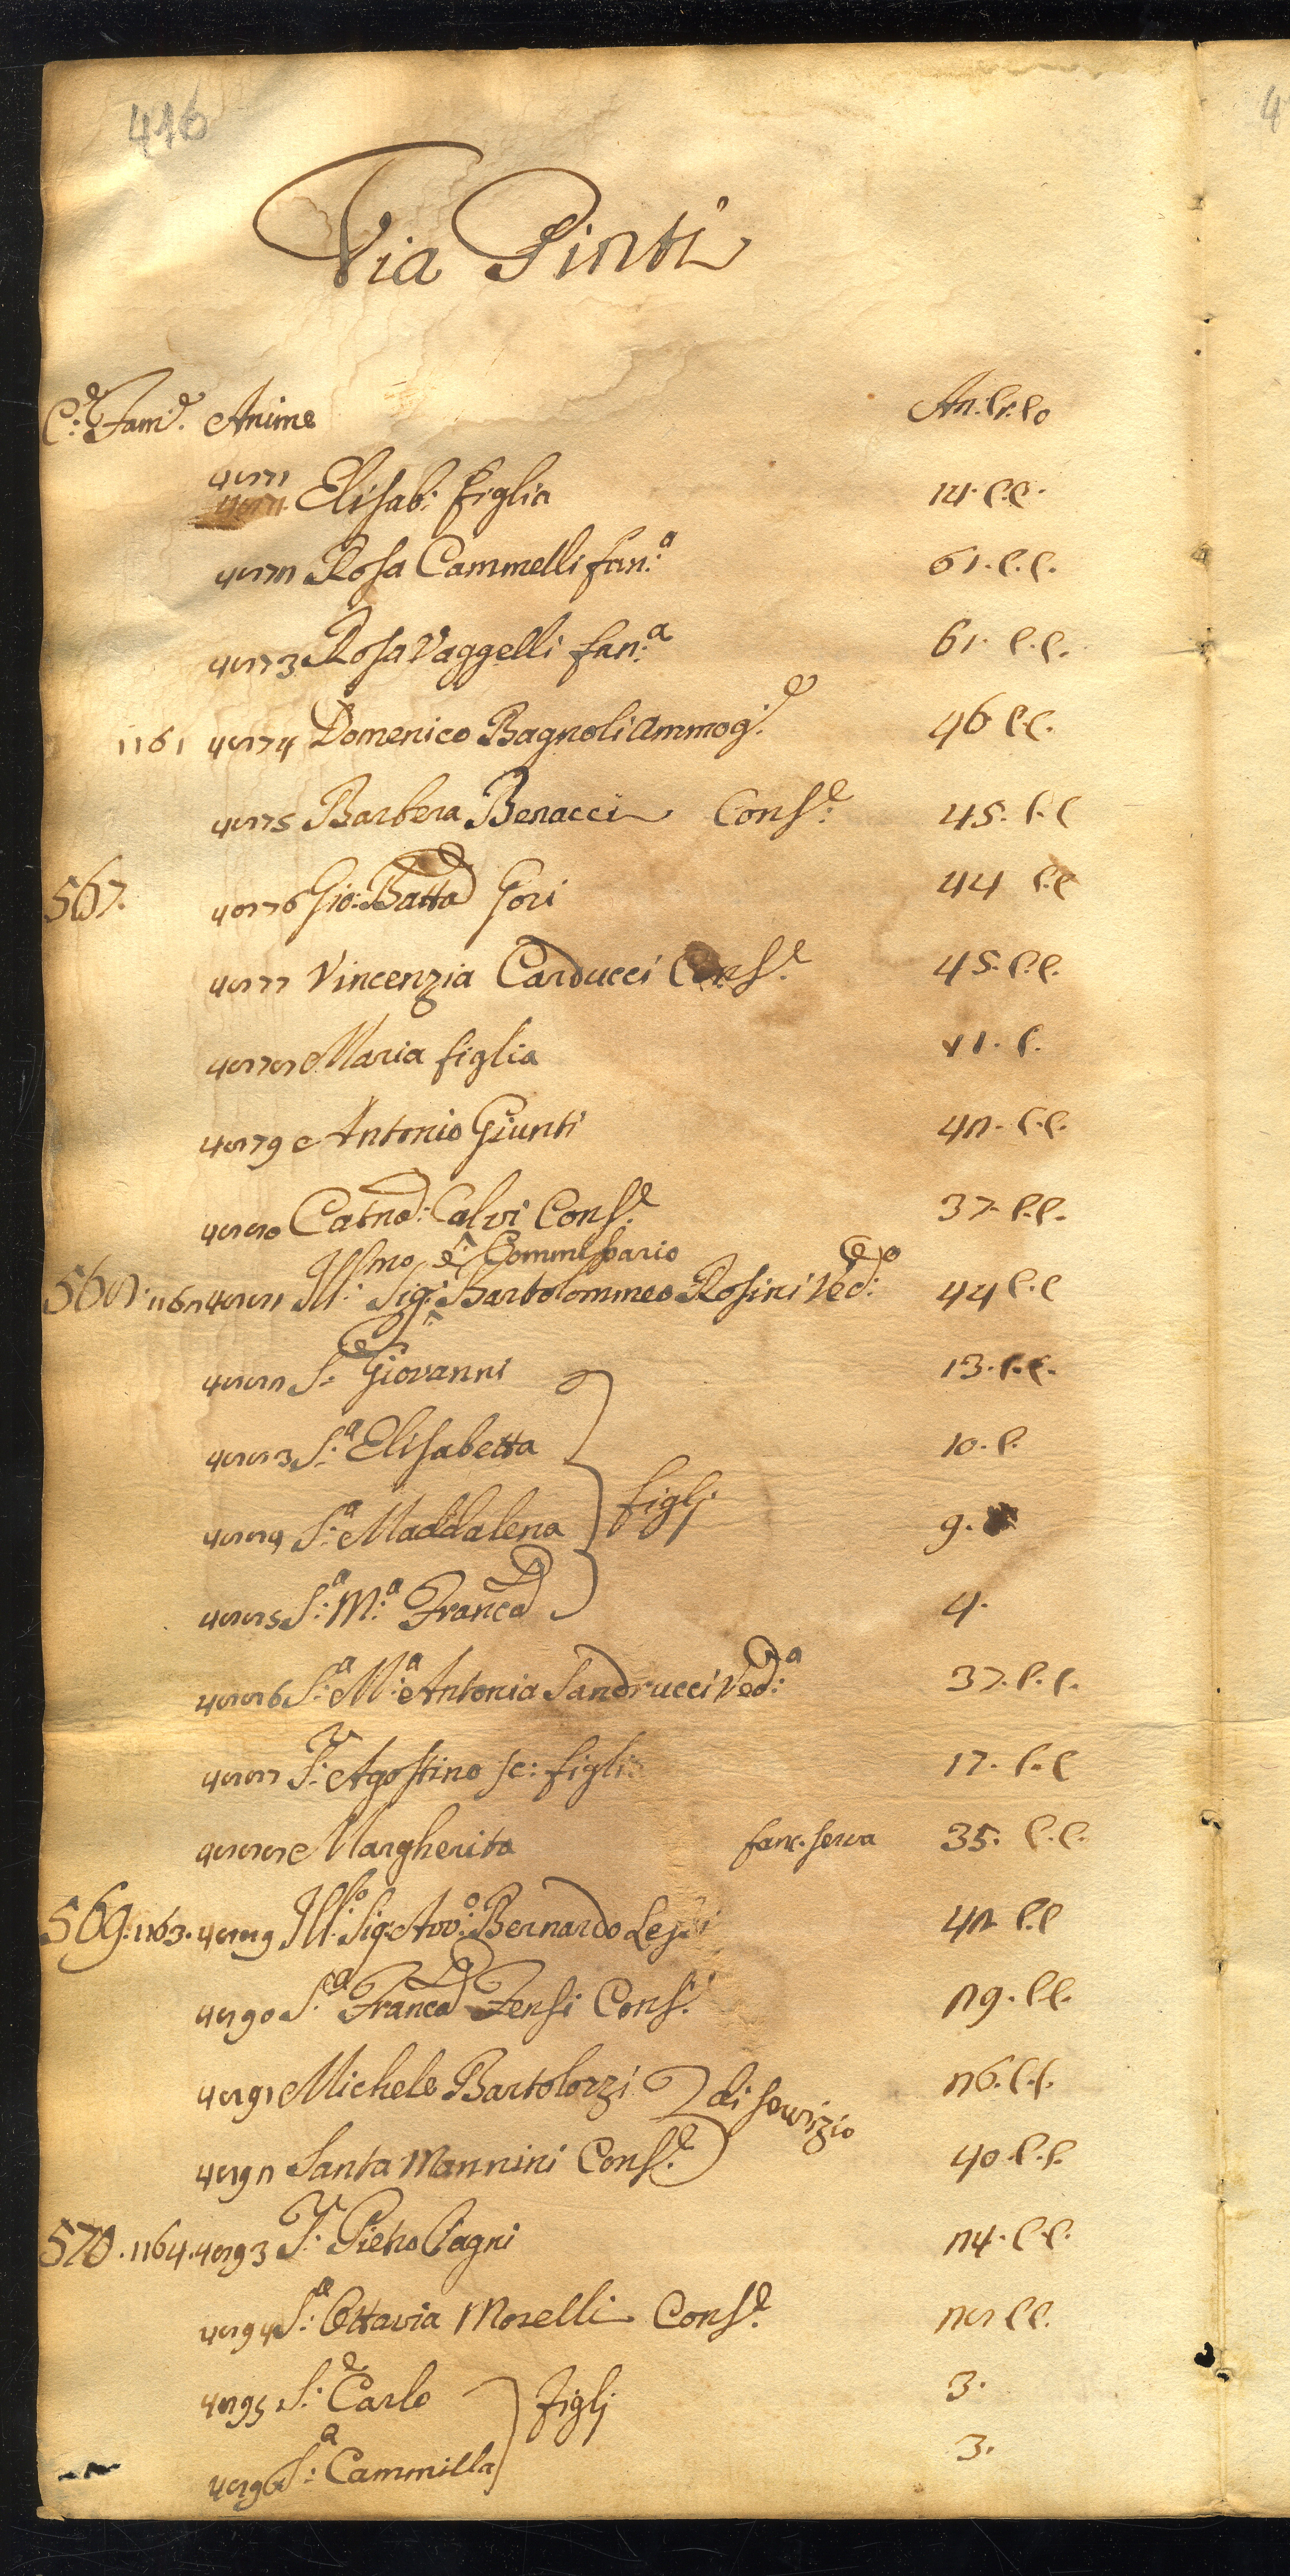 416
Via Pinti
C:e Fam:e Anime An. Cr. Co
4871
4871 Elisab: figlia 14. C.C.
4872 Rosa Cammelli fan:a 61. C.C.
4873 Rosa Vaggelli fan:a 61. C.C.
1161 4874 Domenico Bagnoli Ammog:e 46 C.C.
4875 Barbera Benacci Cons:e 45. C.C
567. 4876 Gio: Batta Gori 44 C.C
4877 Vincenzia Carducci Cons:e 45. C.C.
4878 Maria figlia 11. C.
4879 Antonio Giunti 42. C.C.
4880 Catna: Calvi Cons:e 37. C.C.
568. 1162 4881 Ill:mo Sig:e Commissario Bartolommeo Rosini Ved:o 44 C.C
4882 S:e Giovanni 13. C.C.
4883 S:a Elisabetta 10. C.
4884 S:a Maddalena figlj 9.
4885 S:a M:a Franca 4.
4886 S:a M:a Antonia Sandrucci Ved:a 37. C.C.
4887 S:r Agostino se: figlio 17. C.C
4888 Margherita fanc. serva 35. C.C.
569. 1163. 4889 Ill:o Sig: Avv:o Bernardo 42 C.C
4890 S:a Franca Fensi Cons:e 29. C.C.
4891 Michele Bartolozzi di servizio 26. C.C.
4892 Santa Mannini Cons:e 40. C.C.
570. 1164. 4893 S:r Pietro Pagni 24. C.C.
4894 S:a Ottavia Morelli Cons:e 28 C.C.
4895 S:e Carlo figlj 3.
4896 S:a Cammilla 3.